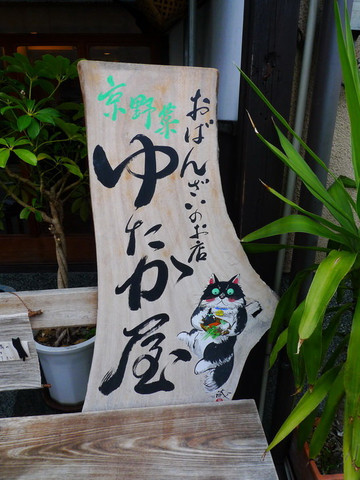 京野菜
おばんざいのお店
ゆたか屋